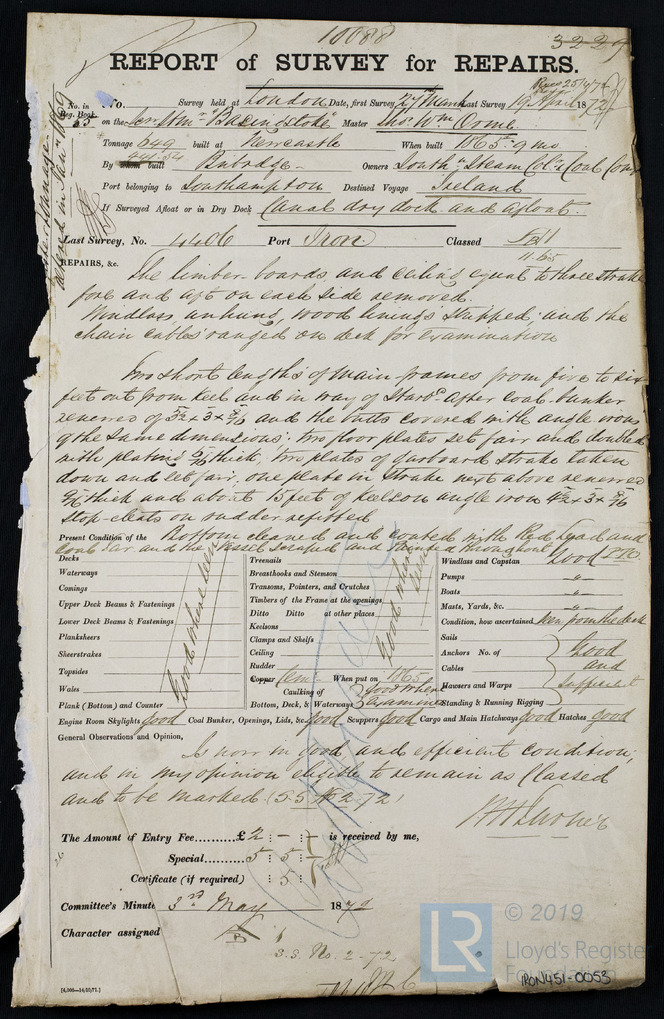 10088
3229
REPORT of SURVEY for REPAIRS.
Recd 25/4/72
No. in Reg. Book. No. Survey held at London Date, first Survey 27th March Last Survey 19 April 1872
53 on the Scr. Stmr "Basingstoke" Master Thos Wm Orme
Tonnage 549 built at Newcastle When built 1865 - 9 mo
441.54
By whom built Owners Southn Steam Coln & Coal Comy
Port belonging to Southampton Destined Voyage Ireland
If Surveyed Afloat or in Dry Dock Canal dry dock and afloat.
Last Survey, No. 4406 Port Iron Classed
11.65
REPAIRS, &c.
The limber-boards and ceiling equal to three strakes
fore and aft on each side removed.
Windlass unhung, wood linings stripped and the
chain cables ranged on deck for examination
Two short lengths of main frames from five to six
feet out from keel and in way of Starbd after coal bunker
renewed of 5½ x 3 x 5/16 and the butts covered with angle irons
of the same dimensions; two floor plates set fair and doubled
with plating thick, two plates of garboard strake taken
down and set fair, one plate in strake next above renewed
thick and about 15 feet of keelson angle iron 4½ x 3 x
Stop-cleats on rudder refitted
Present Condition of the Bottom cleaned and coated with Red Lead and
Coal Tar and the vessel scraped and painted throughout
Decks
Waterways
Comings
Upper Deck Beams & Fastenings
Lower Deck Beams & Fastenings
Planksheers
Sheerstrakes
Topsides
Wales
Plank (Bottom) and Counter
Good where seen
Treenails
Breasthooks and Stemson
Transoms, Pointers, and Crutches
Timbers of the Frame at the openings
Ditto Ditto at other places
Keelsons
Clamps and Shelfs
Ceiling
Rudder
Good where seen
Copper Cemt When put on 1865
Caulking of Bottom, Deck, & Waterways Good where examined
Windlass and Capstan Good
Pumps "
Boats "
Masts, Yards, &c. "
Condition, how ascertained Seen from the deck
Sails
Anchors No. of
Cables
Hawsers and Warps
Standing & Running Rigging
Good and sufficient
Engine Room Skylights good Coal Bunker, Openings, Lids, &c. good Scuppers good Cargo and Main Hatchways good Hatches good
General Observations and Opinion,
Is now in good and efficient condition,
and in my opinion eligible to remain as Classed
and to be marked (S.S. No 2-72)
The Amount of Entry Fee.......... £2 : - : - is received by me,
Special.......... 5 : 5 : -
Certificate (if required) : 5 :
Committee's Minute 3rd May 1872
Character assigned
S.S. No. 2-72
[4,000—14/10/71.]
© 2019
LR
Lloyd's Register
Foundation
IRON451-0053